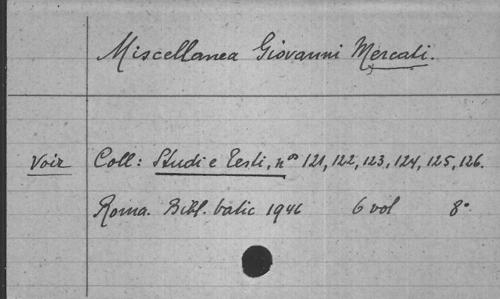 Miscellanea Giovanni Mercati.
Voir Coll: Studi e Testi, nos 121, 122, 123, 124, 125, 126.
Roma. Bibl. Vatic 1946 6 vol 8°